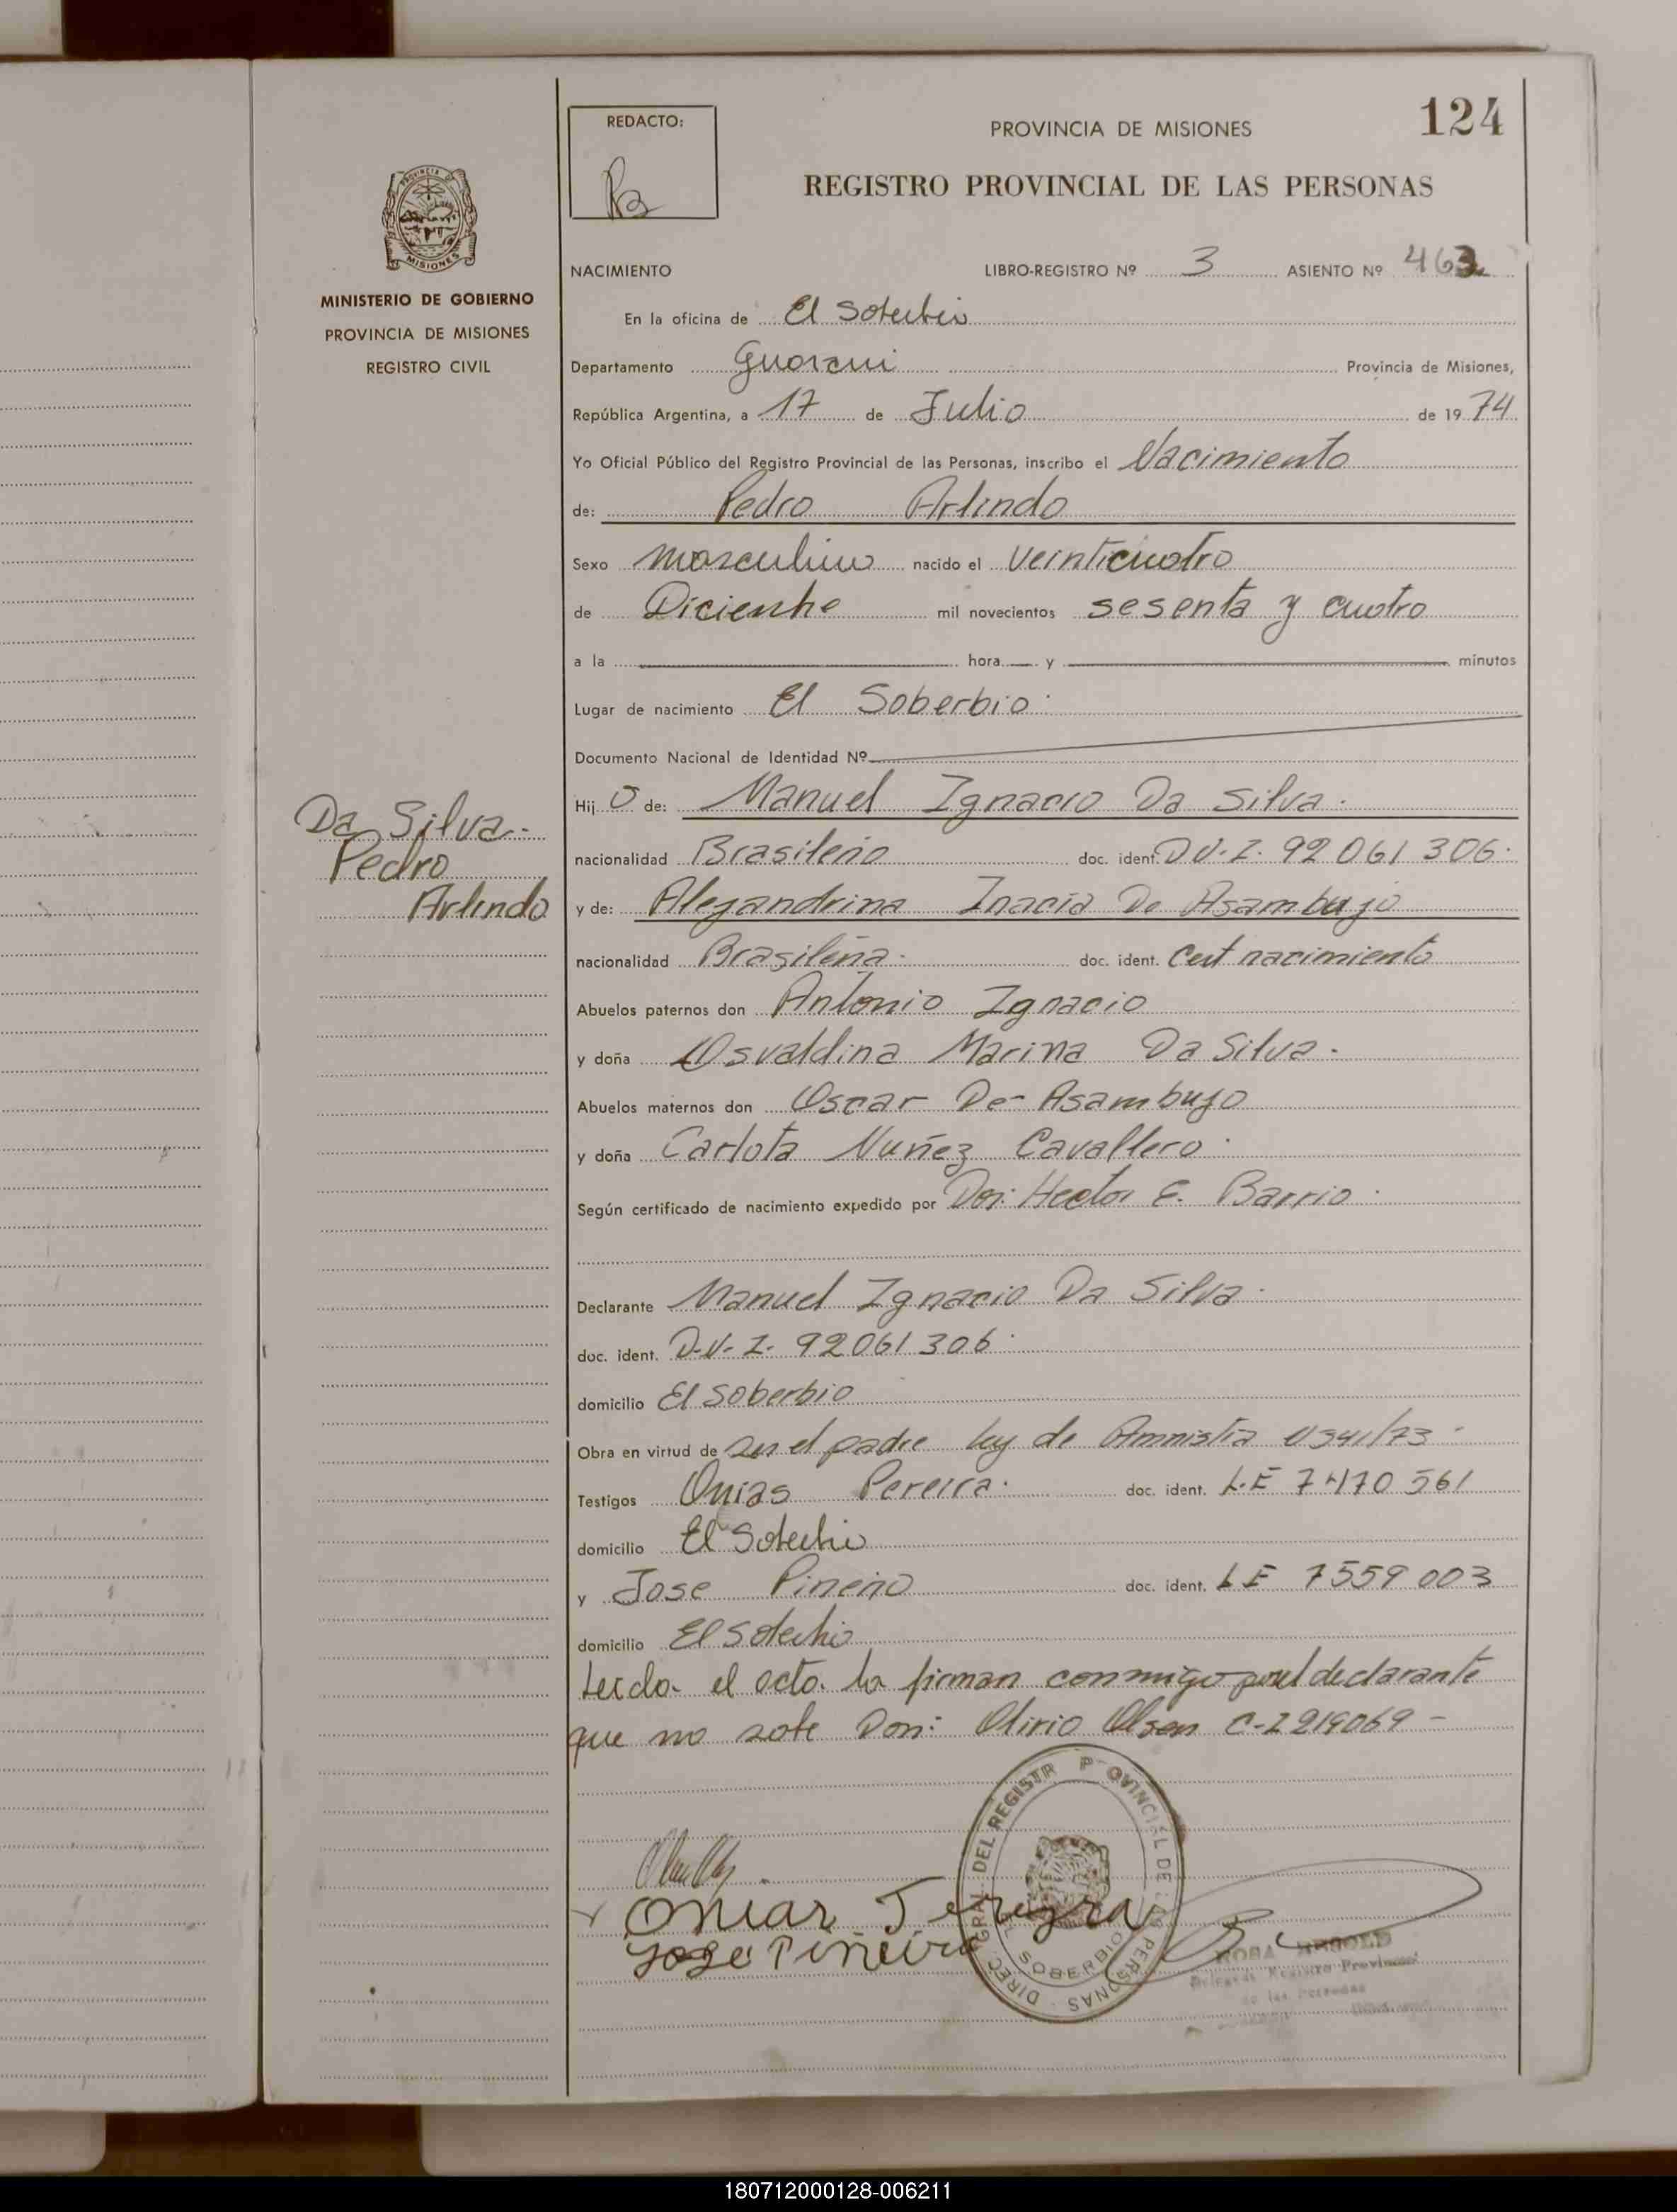 124
REDACTO:
PROVINCIA DE MISIONES
REGISTRO PROVINCIAL DE LAS PERSONAS
MISIONES
MINISTERIO DE GOBIERNO
PROVINCIA DE MISIONES
REGISTRO CIVIL
NACIMIENTO LIBRO-REGISTRO Nº 3 ASIENTO Nº 463
En la oficina de El Soberbio
Departamento Guarani Provincia de Misiones,
República Argentina, a 17 de Julio de 1974
Yo Oficial Público del Registro Provincial de las Personas, inscribo el Nacimiento
de: Pedro Arlindo
Sexo masculino nacido el veinticuatro
de Diciembre mil novecientos sesenta y cuatro
a la hora y minutos
Lugar de nacimiento El Soberbio
Documento Nacional de Identidad Nº
Hijo de: Manuel Ignacio Da Silva.
Da Silva.
Pedro
Arlindo
nacionalidad Brasileño doc. ident. D.N.I. 92061306.
y de: Alejandrina Inacia De Asambujo
nacionalidad Brasileña. doc. ident. Cert nacimiento
Abuelos paternos don Antonio Ignacio
y doña Osvaldina Marina Da Silva.
Abuelos maternos don Oscar De Asambujo
y doña Carlota Nuñez Cavallero.
Según certificado de nacimiento expedido por Don: Hector E. Barrio.
Declarante Manuel Ignacio Da Silva.
doc. ident. D.N.I. 92061306.
domicilio El Soberbio
Obra en virtud de ser el padre ley de Amnistia
Testigos Onias Pereira. doc. ident. L.E 7470561
domicilio El Soberbio
y Jose Pineiro doc. ident. L.E 7559003
domicilio El Soberbio
Leida el acta la firman conmigo por el declarante
que no sabe Don: Olirio Olsen C-I 219069-
Onias Pereyra
Jose Piñeiro
DIREC. GRAL. DEL REGISTR P OVINCIAL DE LAS PERSONAS
SOBERBIO
Delegada Registro Provincial
de las Personas
180712000128-006211